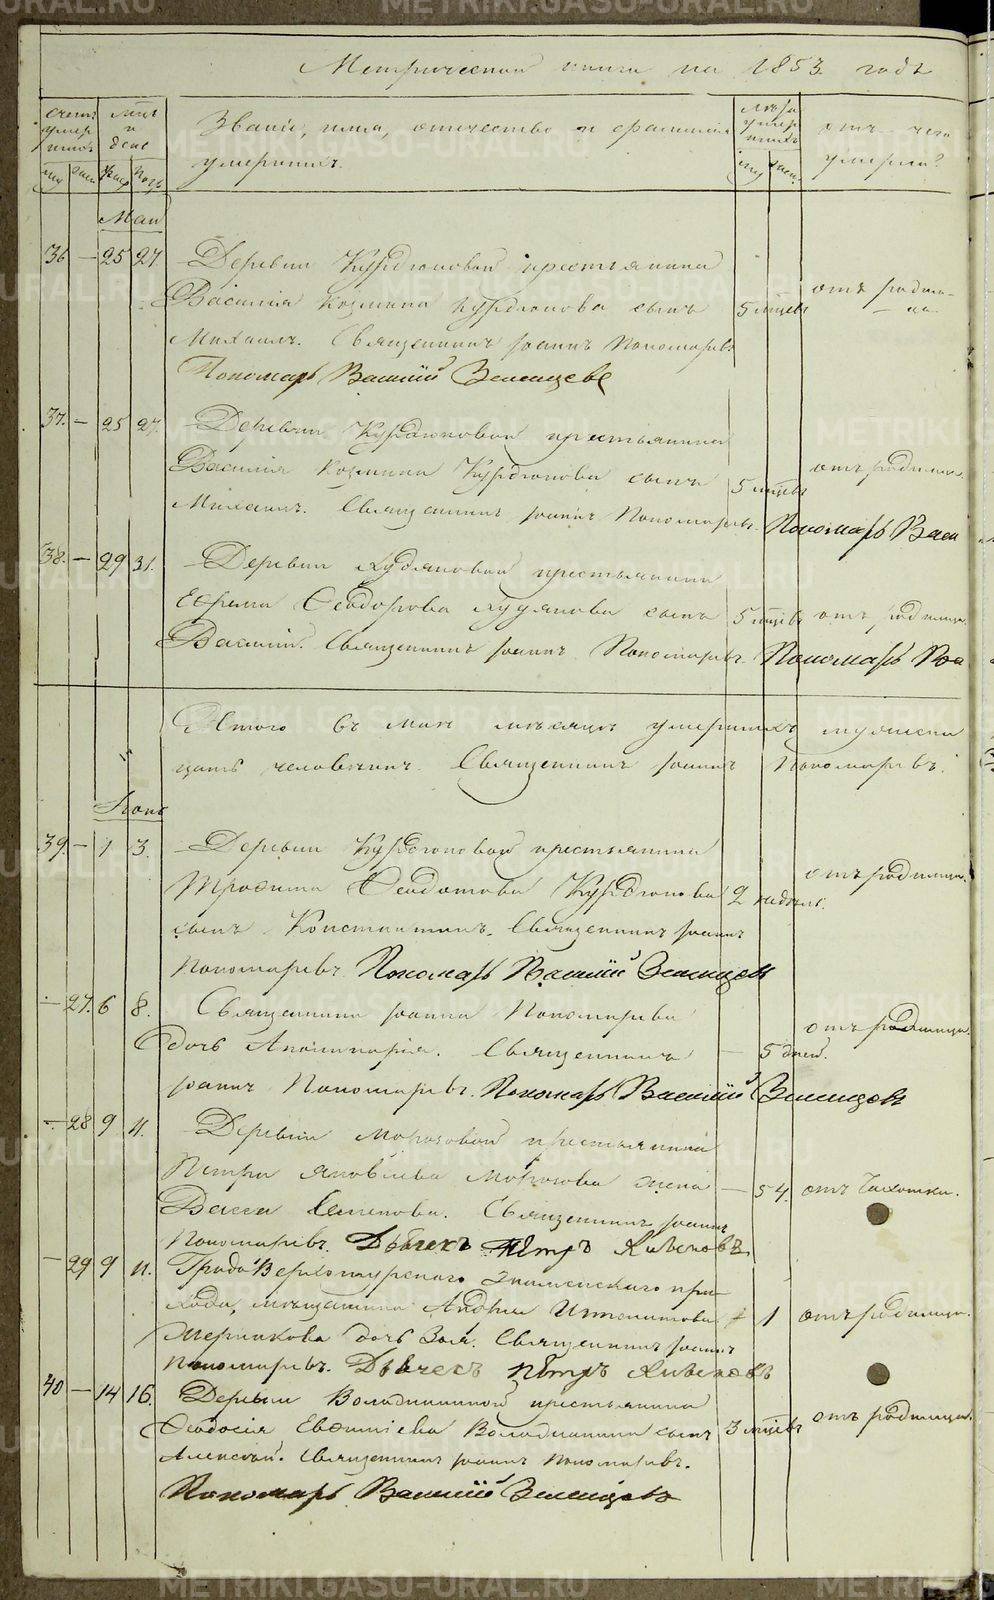 Метрической книги на 1853 годъ
Счетъ умершихъ
Мцъ и день
Званіе, имя, отчество и фамилія умершихъ.
Лѣта умершихъ
отъ чего умерли?
Май
36 — 25 27 Деревни Курдюковой крестьянина
Василія Козмина Курдюкова сынъ 5 мцевъ отъ родим-
Михаилъ. Священникъ Іоаннъ Пономаревъ
Пономарь Василій Земляцовъ
37. — 25 27. Деревни Курдюковой крестьянина
Василія Козмина Курдюкова сынъ 5 мцевъ отъ родимца.
Михаилъ. Священникъ Іоаннъ Пономаревъ. Пономарь Васи
38. — 29 31. Деревни Худяковой крестьянина
Ефрема Ѳеодорова Худякова сынъ 5 мцевъ отъ родимца.
Василій. Священникъ Іоаннъ Пономаревъ. Пономарь Ва
Итого въ маѣ мѣсяцѣ умершихъ
человѣкъ. Священникъ Іоаннъ Пономаревъ.
Іюнь
39. — 1 3. Деревни Курдюковой крестьянина
Трофима Ѳеодотова Курдюкова 2 недѣль. отъ родимца.
сынъ Константинъ. Священникъ Іоаннъ
Пономаревъ. Пономарь Василій
— 27. 6 8. Священника Іоанна Пономарева
дочь Аполинарія. Священникъ — 5 дней. отъ родимца.
Іоаннъ Пономаревъ. Пономарь Василій
— 28 9 11. Деревни Морозовой крестьянина
Петра Яковлева Морозова жена — 54. отъ чахотки.
Васса Семенова. Священникъ Іоаннъ
Пономаревъ. Дьячекъ Петръ
— 29 9 11. Града Верхотурскаго Знаменскаго при-
хода, мѣщанина Андрея Ипполитова 1 отъ родимца.
дочь Зоя. Священникъ Іоаннъ
Пономаревъ. Дьячекъ Петръ
40 — 14 16. Деревни Володиминой крестьянина
Ѳеодосія Евфиміева Володимина сынъ 3 мцевъ отъ родимца.
Алексѣй. Священникъ Іоаннъ Пономаревъ.
Пономарь Василій
METRIKI.GASO-URAL.RU